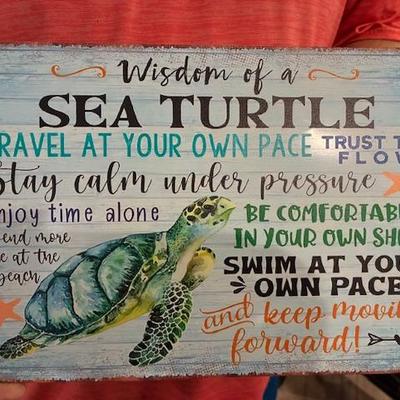 Wisdom of a
SEA TURTLE
RAVEL AT YOUR OWN PACE
TRUST T
FLOW
Stay calm under pressure
njoy time alone
end more
e at the
beach
BE COMFORTABL
IN YOUR OWN SHE
SWIM AT YOU
OWN PACE
and keep movin
forward!